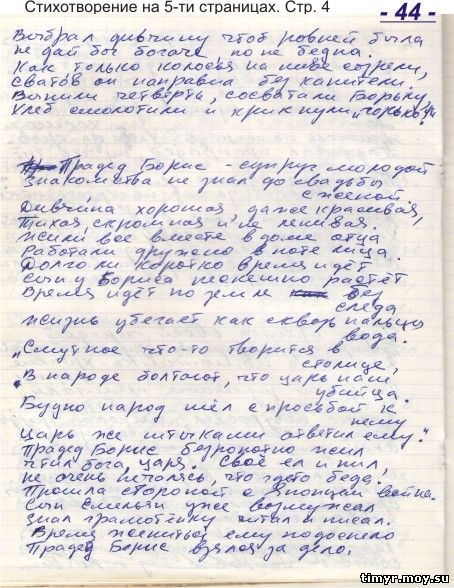 Стихотворение на 5-ти страницах. Стр. 4
- 44 -
Выбрал дивчину чтоб ровней была
не дай бог богаче но не бедна.
Как только колосья на ниве созрели,
Сватов он направил без канители.
Выпили четверть, сосватали Борьку,
Хлеб смолотили и крикнули „горько"!
Прадед Борис - супруг молодой
Знакомства не знал до свадьбы
с женой.
Дивчина хорошая, даже красивая,
Тихая, скромная и не ленивая.
Жили все вместе в доме отца
Работали дружно в поте лица.
Долго ли коротко время идёт
Сын у Бориса неспешно растёт
Время идёт по земле без
следа
Жизнь убегает как сквозь пальцы
вода.
„Смутное что-то творится в
столице,
В народе болтают, что царь наш
убийца.
Будто народ шёл с просьбой к
нему
Царь же штыками ответил ему."
Прадед Борис безропотно жил
Чтил бога, царя. Своё ел и пил,
не очень печалясь, что где-то беда.
Прошла стороной с Японцами война.
Сын Емельян уже возмужал
Знал грамотёнку читал и писал.
Время женитьбы ему подоспело
Прадед Борис взялся за дело.
timyr.moy.su